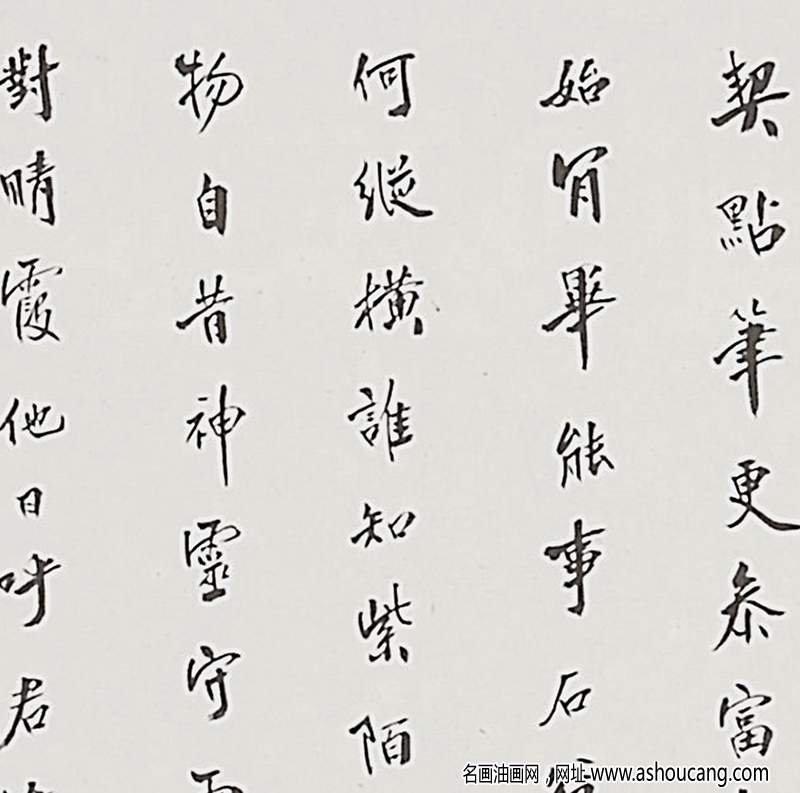 契點筆更參富
始肎畢能事石
何縱橫誰知紫陌
物自昔神靈守
對晴霞他日呼君
名画油画网，网址 www.ashoucang.com